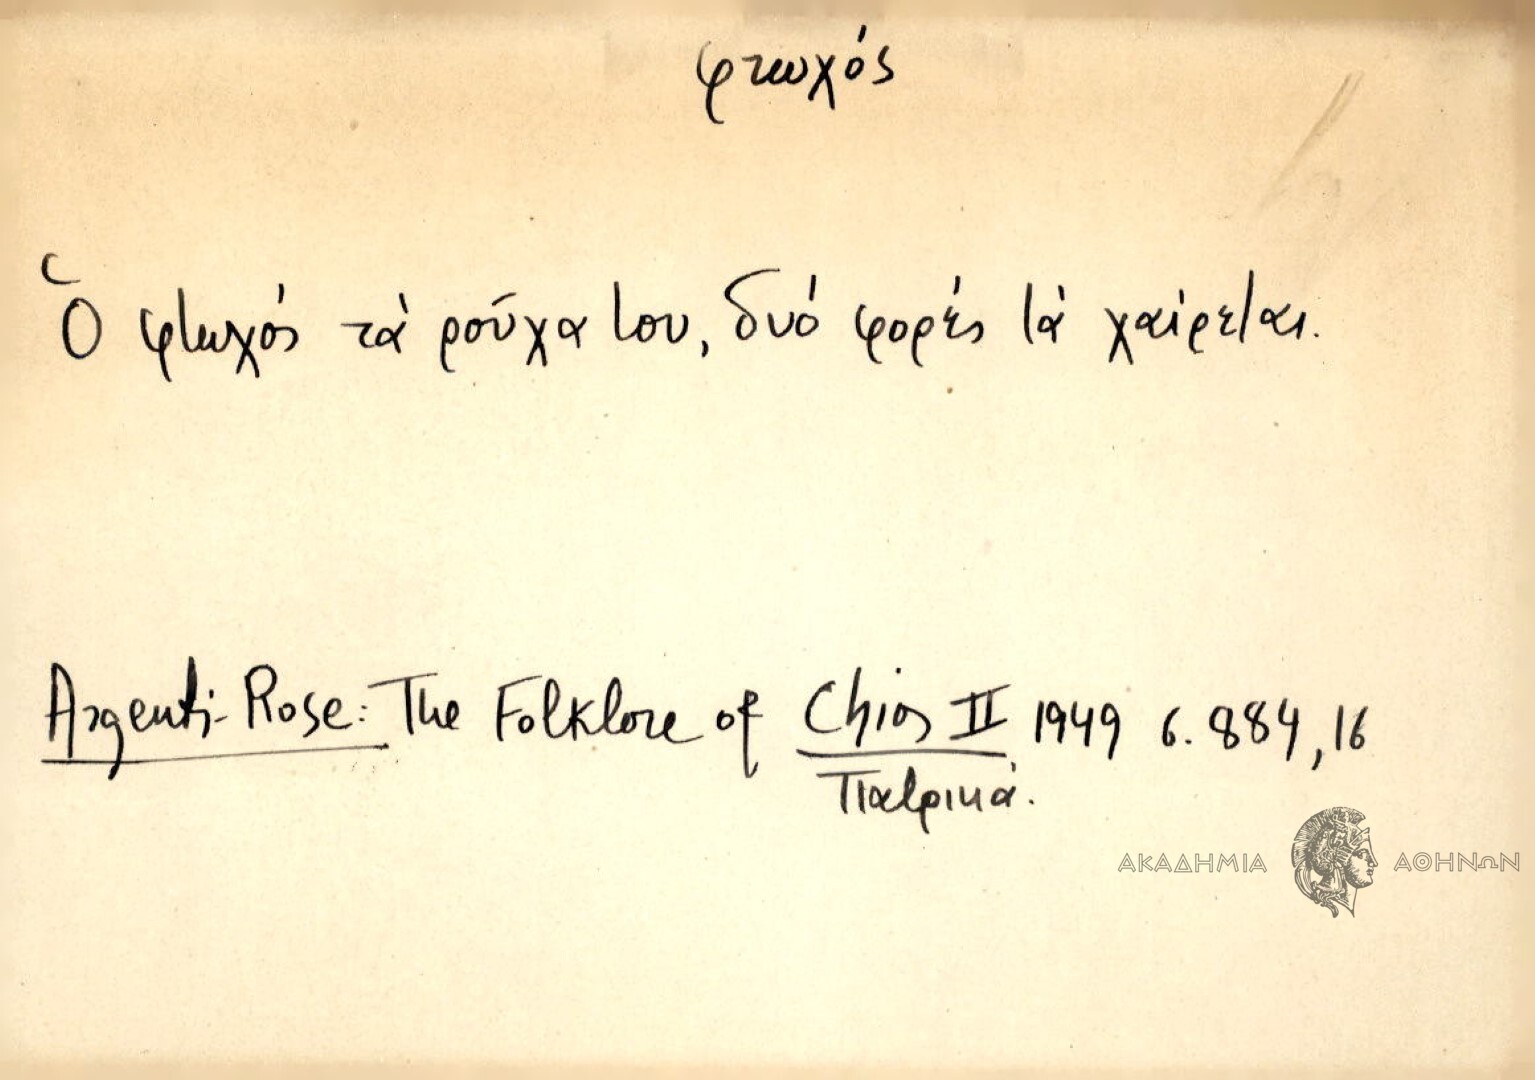 φτωχός
Ὁ φτωχός τὰ ροῦχα του, δυό φορές τὰ χαίρεται.
Argenti-Rose: The Folklore of Chios II 1949 σ. 884, 16
Πατρικά.
ΑΚΑΔΗΜΙΑ ΑΘΗΝΩΝ